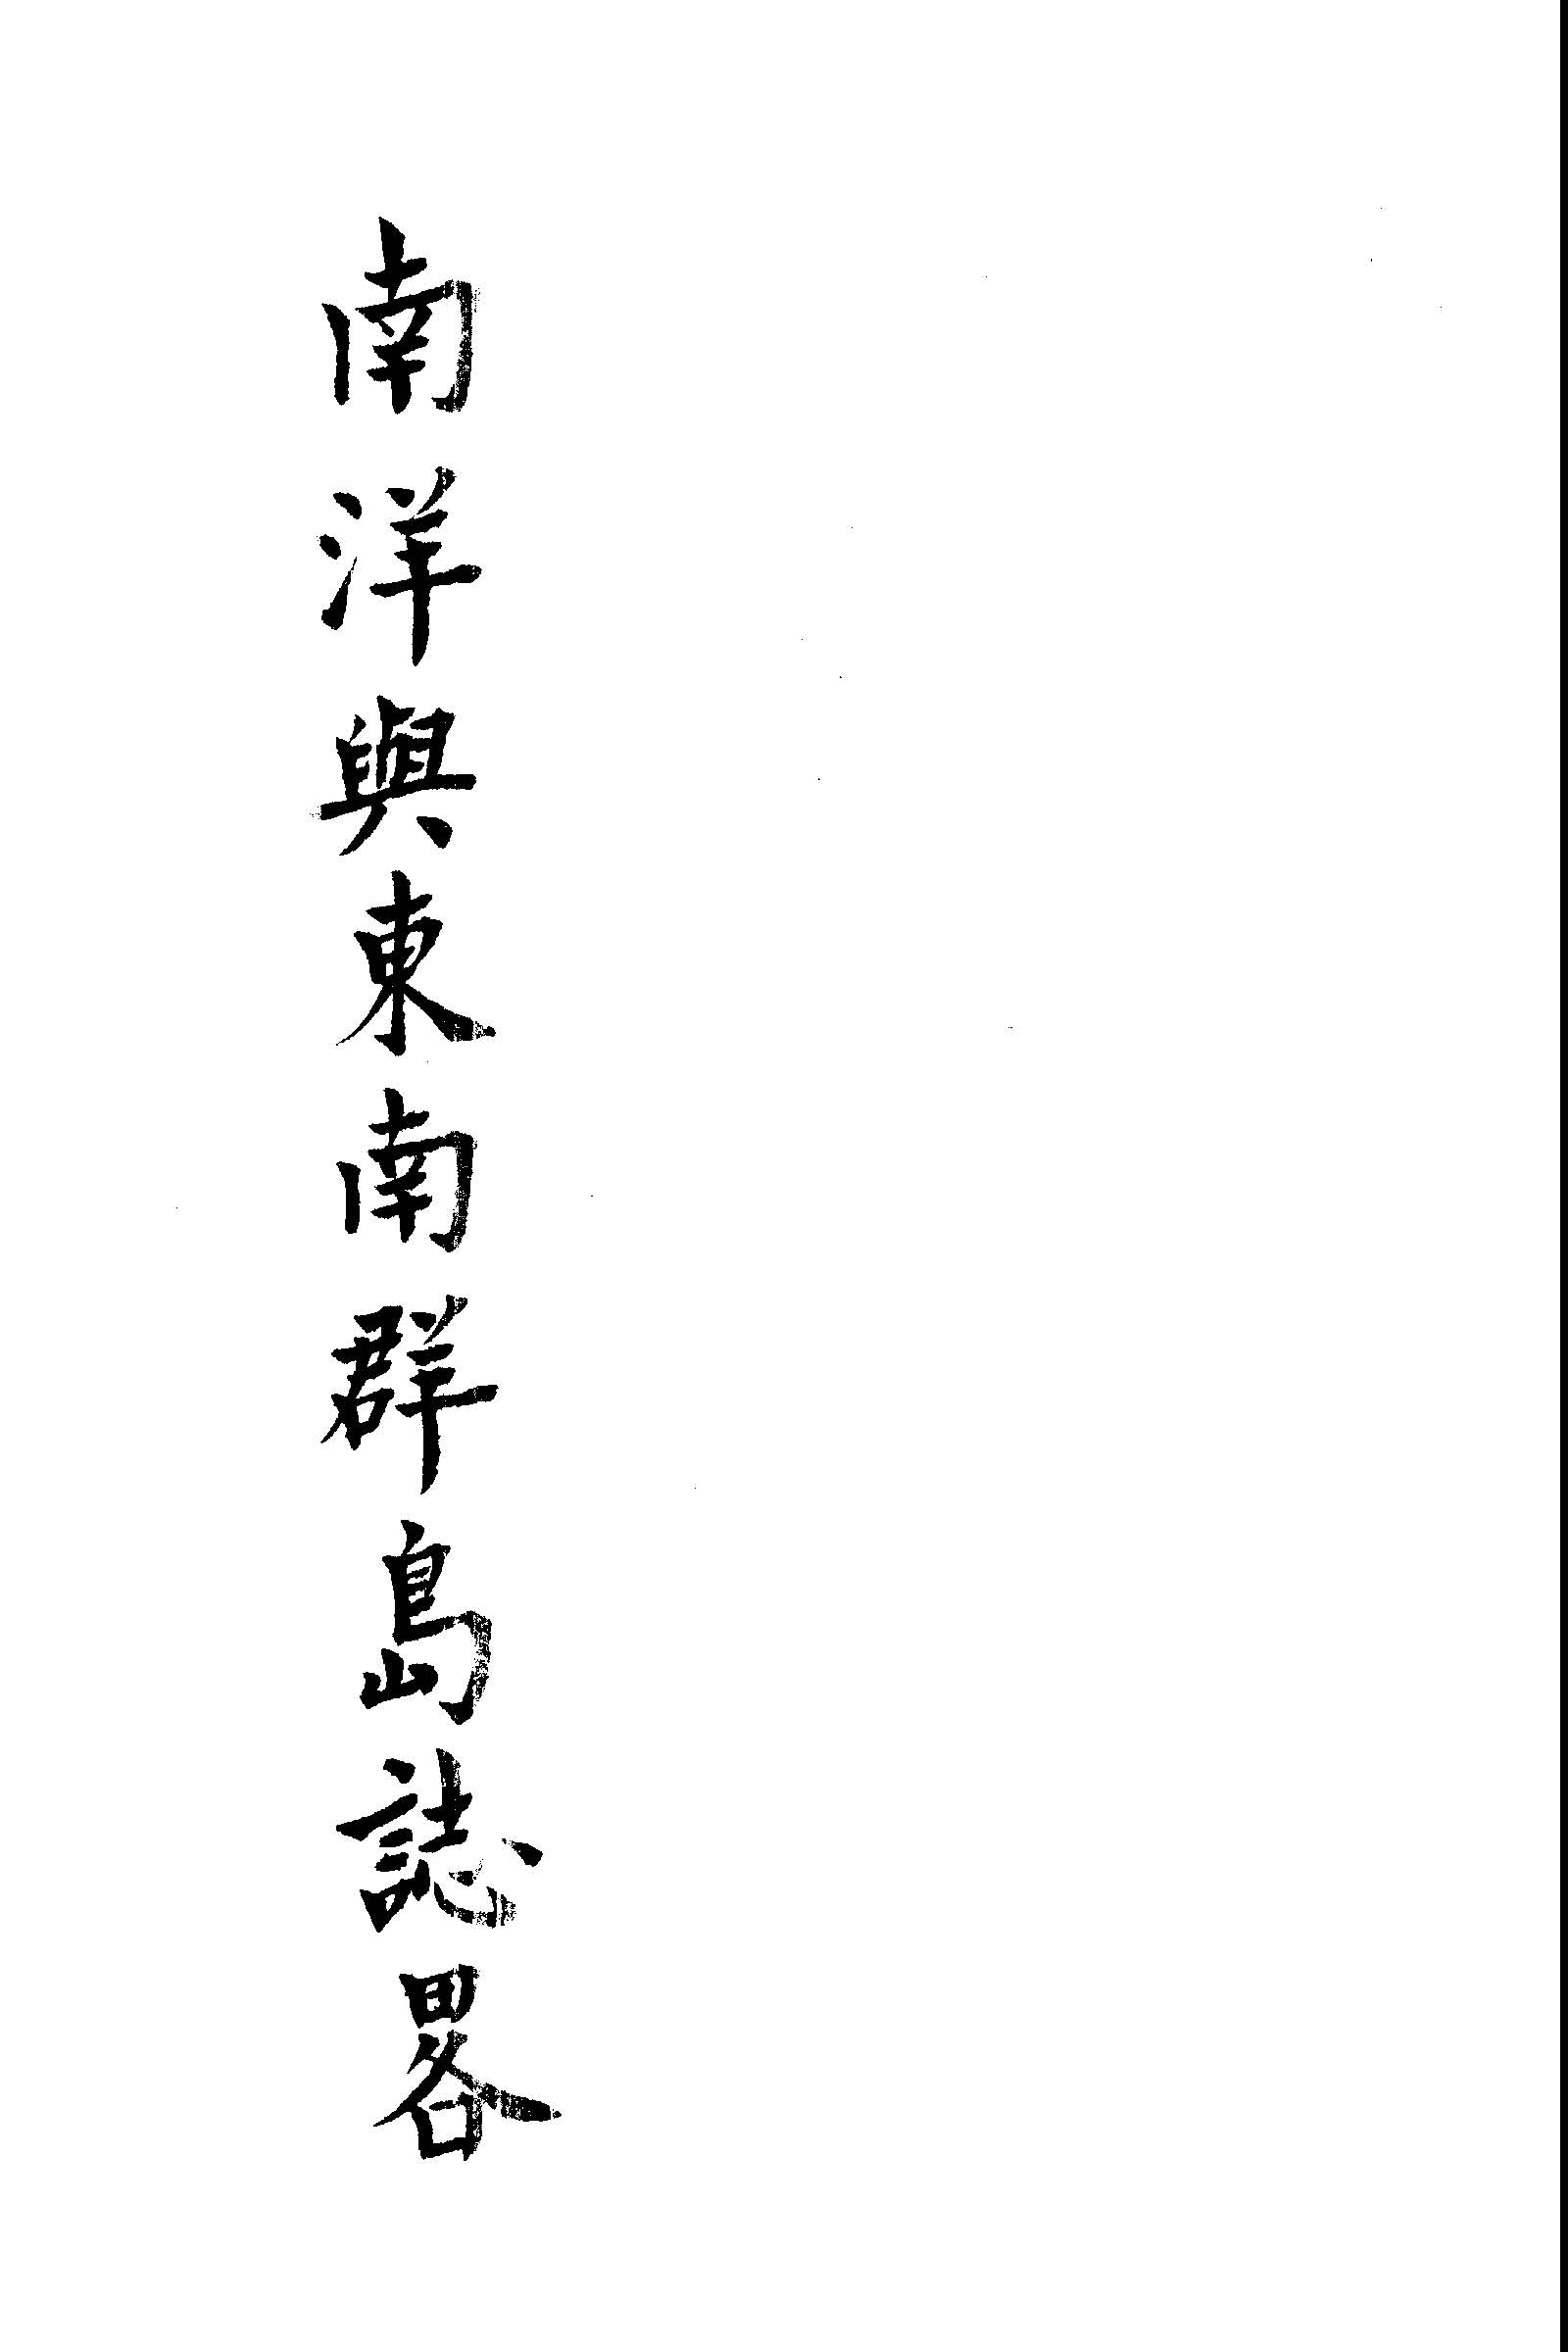 南洋與東南群島誌畧